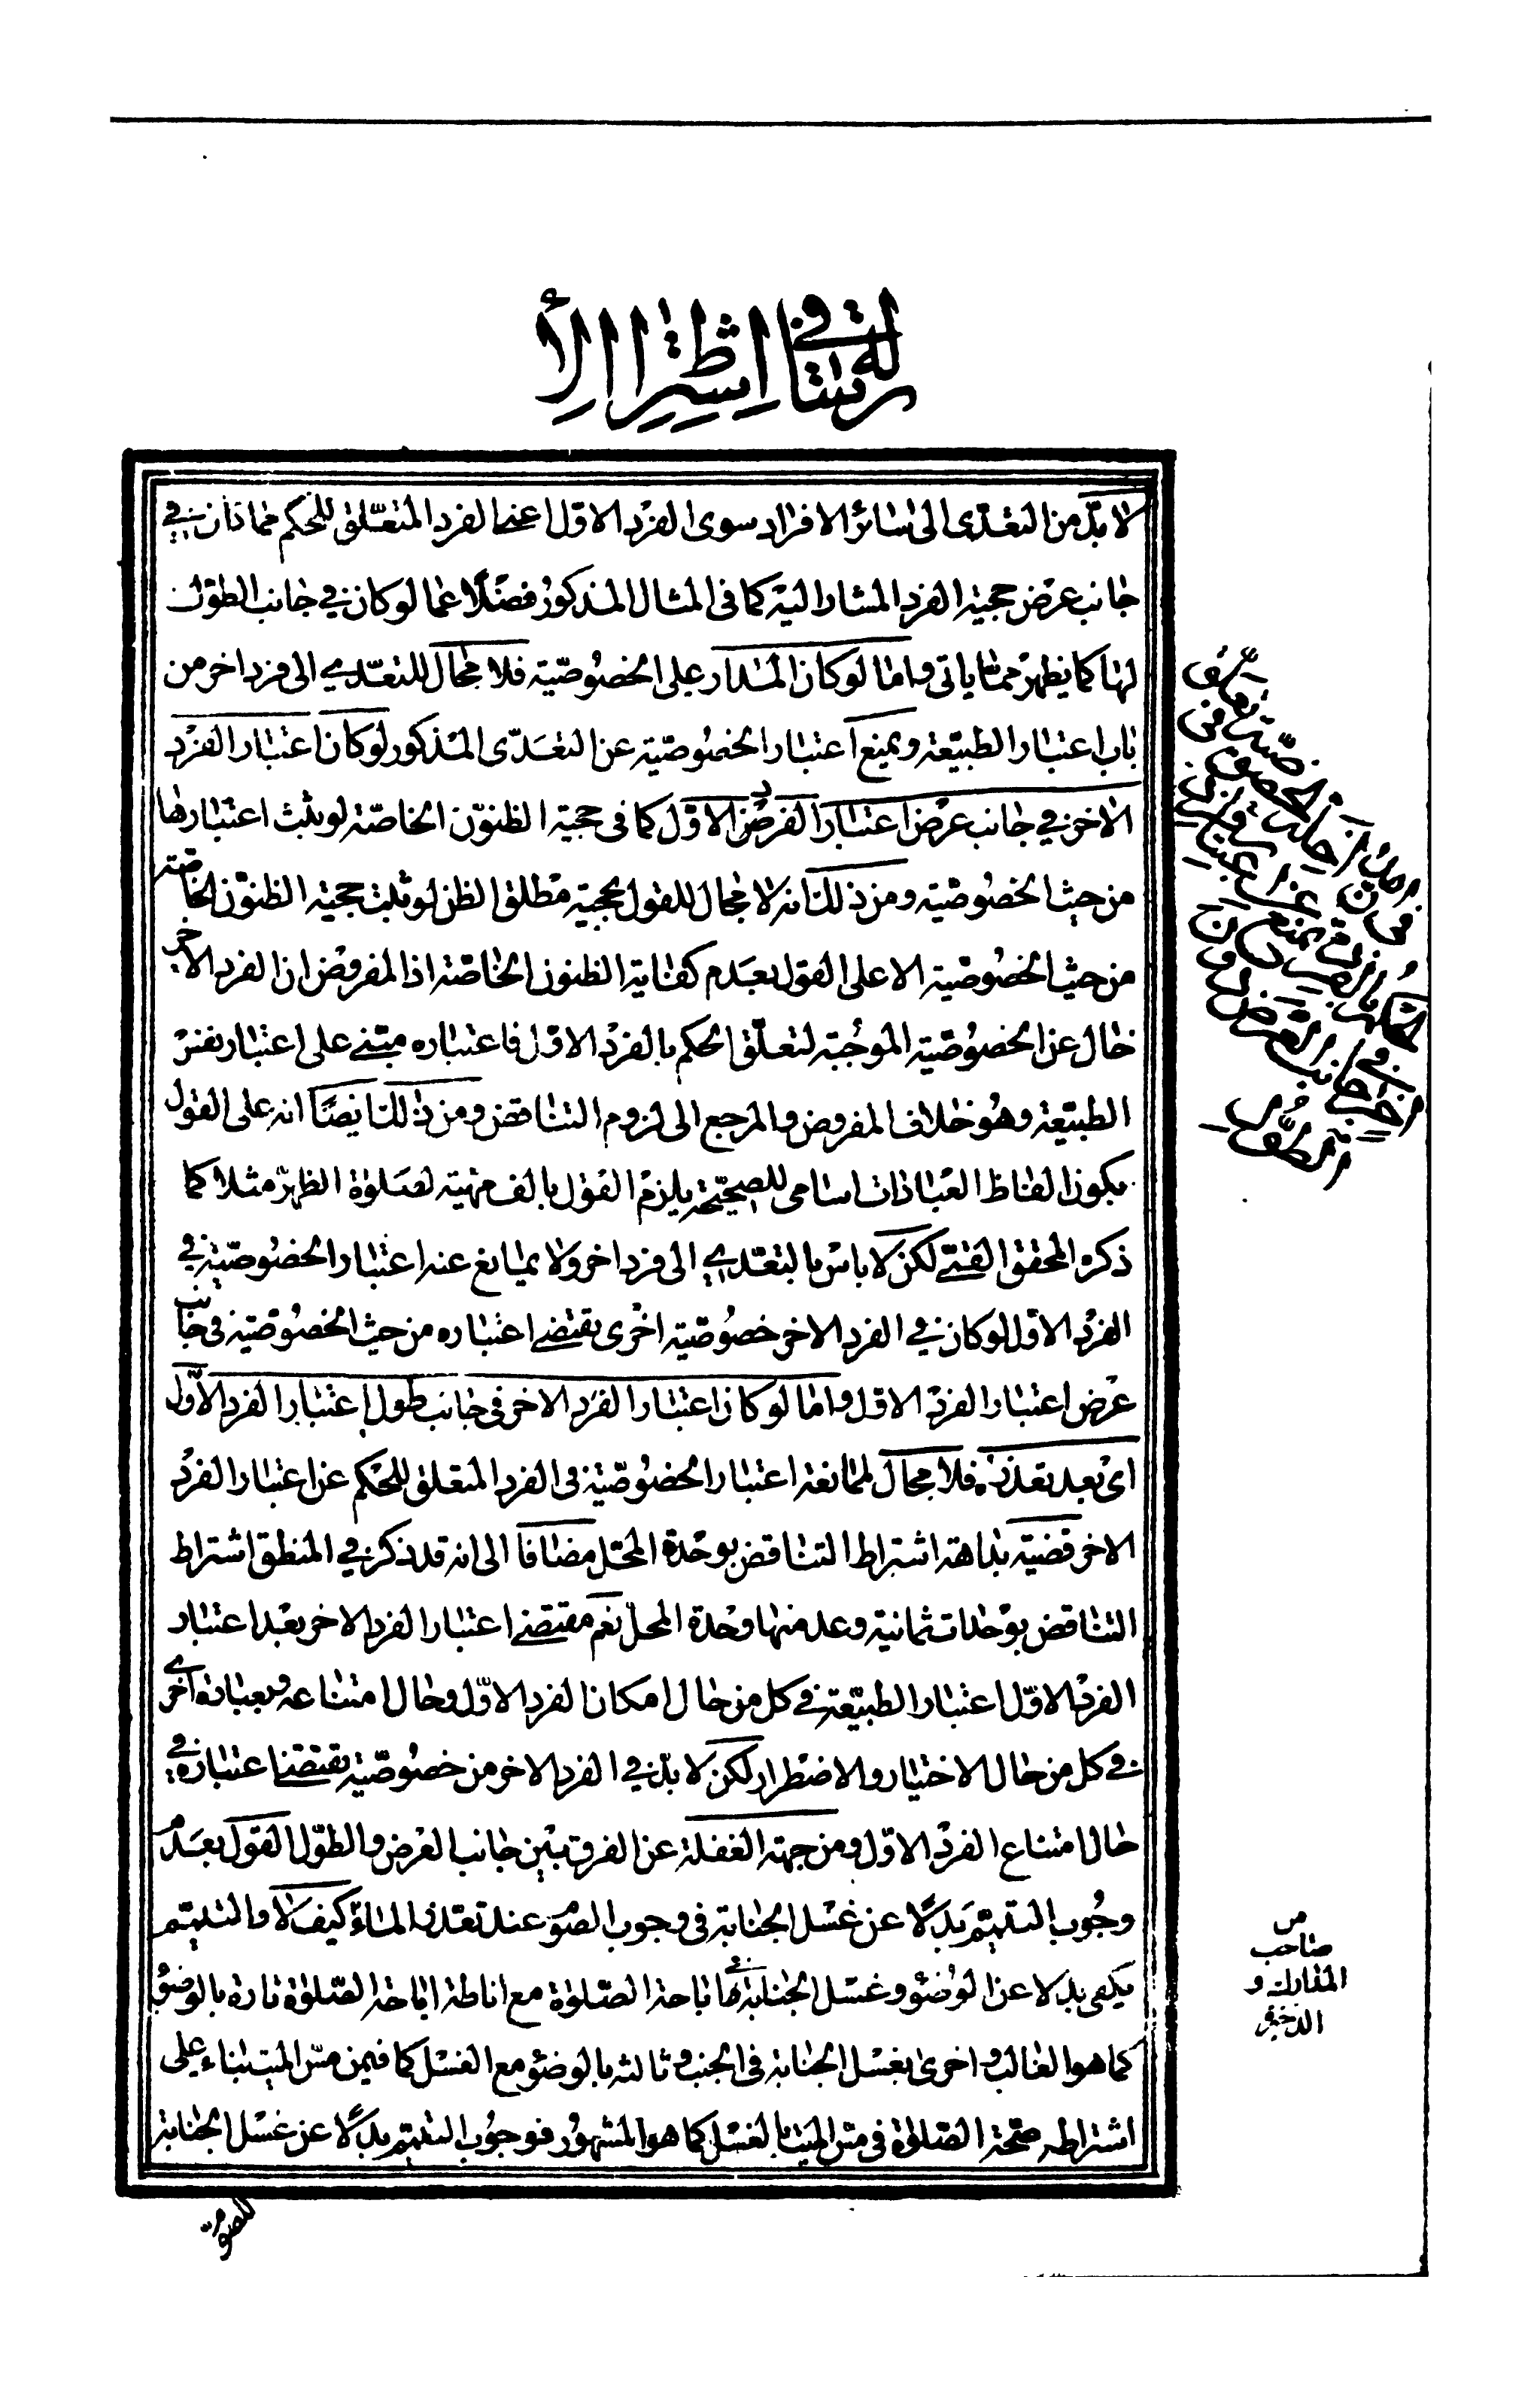 رسالة في اشتراط الا
لا بدّ من التعدّى الى سائر الافراد سوى الفرد الاوّل اعنى الفرد المتعلّق للحكم مما كان في
جانب عرض حجية الفرد المشار اليه كما فى المثال المذكور فضلًا عما لو كان في جانب الطول
لها كما يظهر ممّا ياتى واما لو كان المدار على الخصوصيّة فلا مجال للتعدّي الى فرد اخر من
باب اعتبار الطبيعة ويمنع اعتبار الخصوصيّة عن التعدّى المذكور لو كان اعتبار الفرد
الاخر في جانب عرض اعتبار الفرد الاوّل كما فى حجية الظنون الخاصّة لو ثبت اعتبارها
من حيث الخصوصيّة ومن ذلك انه لا مجال للقول بحجية مطلق الظن لو ثبت حجية الظنون الخاصّة
من حيث الخصوصيّة الا على القول بعدم كفاية الظنون الخاصّة اذ المفروض ان الفرد الاخر
خال عن الخصوصيّة الموجبة لتعلّق الحكم بالفرد الاوّل فاعتباره مبتنى على اعتبار نفس
الطبيعة وهو خلاف المفروض والمرجع الى لزوم التناقض ومن ذلك ايضًا انه على القول
بكون الفاظ العبادات اسامى للصحيحة يلزم القول بالف مهيّة لصلوة الظهر مثلا كما
ذكره المحقق القمّي لكن لا باس بالتعدّي الى فرد اخر ولا يمانع عنه اعتبار الخصوصيّة في
الفرد الاوّل لو كان في الفرد الاخر خصوصيّة اخرى يقتضى اعتباره من حيث الخصوصيّة فى جانب
عرض اعتبار الفرد الاوّل واما لو كان اعتبار الفرد الاخر فى جانب طول اعتبار الفرد الاوّل
اى بعد تعذره فلا مجال لممانعة اعتبار الخصوصيّة فى الفرد المتعلق للحكم عن اعتبار الفرد
الاخر قضيّة بداهة اشتراط التناقض بوحدة المحلّ مضافا الى انه قد ذكر في المنطق اشتراط
التناقض بوحدات ثمانية وعد منها وحدة المحل نعم مقتضى اعتبار الفرد الاخر بعد اعتبار
الفرد الاوّل اعتبار الطبيعة في كل من حال امكان الفرد الاوّل وحال امتناعه وبعبارة اخرى
في كل من حال الاختيار والاضطرار لكن لا بدّ في الفرد الاخر من خصوصيّة يقتضى اعتباره في
حال امتناع الفرد الاوّل ومن جهة الغفلة عن الفرق بين جانب العرض والطول القول بعدم
وجوب التيمّم بدلًا عن غسل الجنابة فى وجوب الصوم عند تعذر الماء كيف لا والتيمّم
يكفى بدلا عن الوضوء وغسل الجنابة في اباحة الصّلوة مع اناطة اباحة الصّلوة تارة بالوضوء
كما هو الغالب واخرى بغسل الجنابة فى الجنب وثالثة بالوضوء مع الغسل كما فيمن مسّ الميت بناء على
اشتراط صحّة الصّلوة فى مسّ الميت بالغسل كما هو المشهور فوجوب التيمّم بدلًا عن غسل الجنابة
للصوم
من
صاحب
المدارك و
الذخيرة